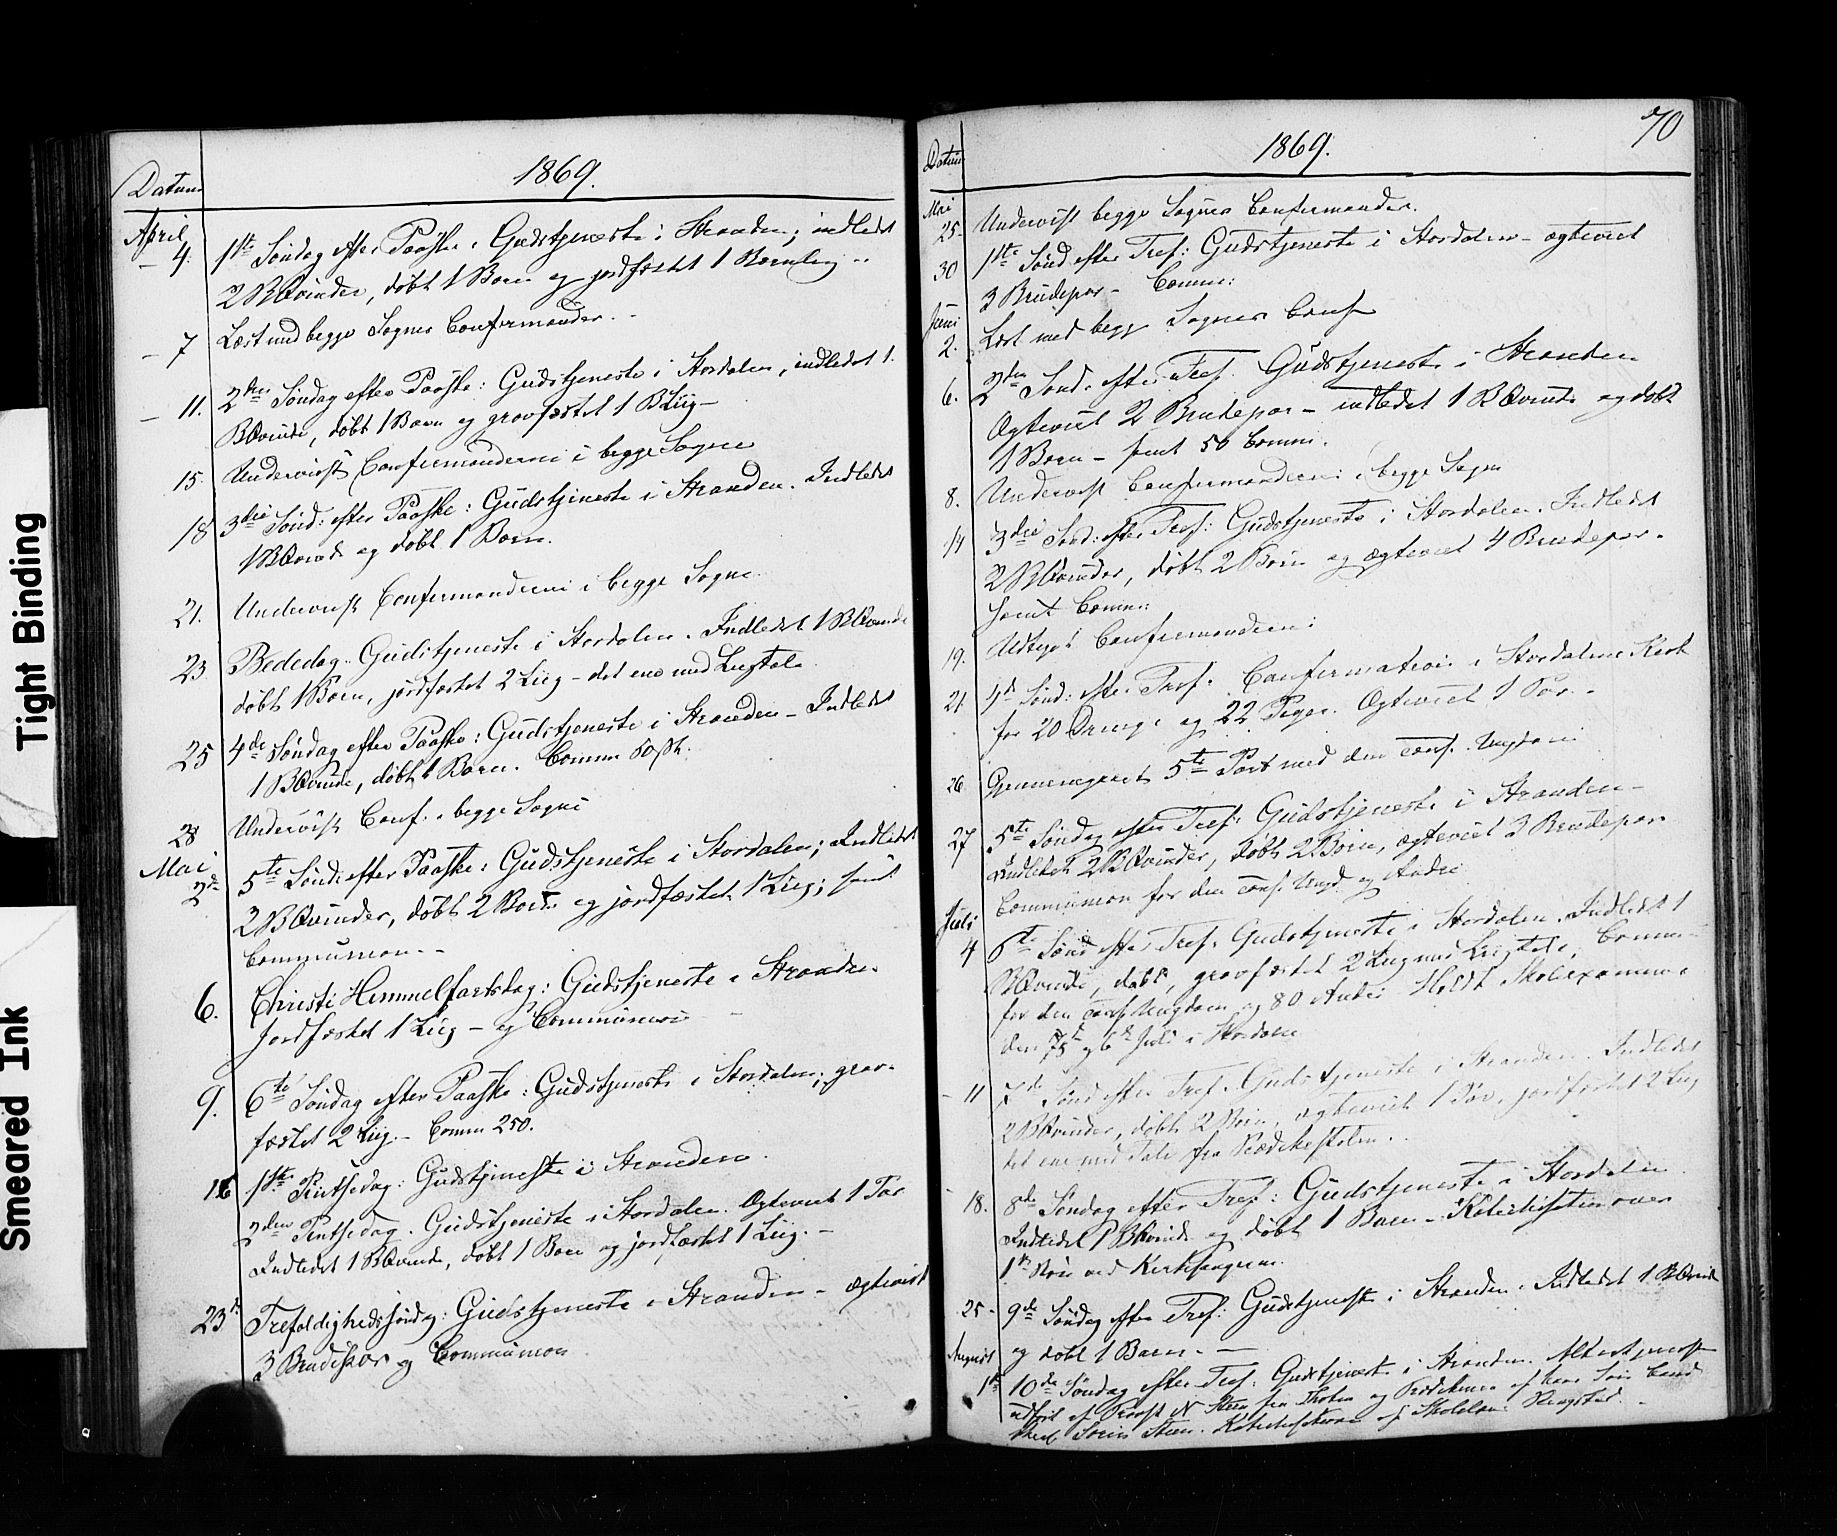 Datum
1869.
April
4. 1ste Søndag efter Paaske: Gudstjeneste i Stranden; indledet
2 BQvinder, døbt 1 Barn og jordfæstet 1 Barnelig
7 Læst med begge Sognes Confirmander.
11. 2den Søndag efter Paaske: Gudstjeneste i Stordalen, indledet 1.
BQvinde, døbt 1 Barn og gravfæstet 1 BLiig
15 Underviist Confirmanderne i begge Sogne
18 3die Sønd: efter Paaske: Gudstjeneste i Stranden. Indledet
1 BQvinde og døbt 1 Barn.
21. Underviist Confirmanderne i begge Sogne.
23 Bededag. Gudstjeneste i Stordalen. Indledet 1 BQvinde
døbt 1 Barn, jordfæstet 2 Liig - det ene med Liigtale
25 4de Søndag efter Paaske: Gudstjeneste i Stranden - Indledet
1 BQvinde, døbt 1 Barn. Commun
28 Underviist Conf. i begge Sogne
Mai
2de 5te Sønd: efter Paaske: Gudstjeneste i Stordalen; Indledet
2 BQvinder, døbt 2 Børn og jordfæstet 1 Liig; samt
Communion -
6. Christi Himmelfartsdag: Gudstjeneste i Stranden
Jordfæstet 1 Liig - og Communion
9. 6te Søndag efter Paaske: Gudstjeneste i Stordalen; grav-
fæstet 2 Liig. - Comm 250.
16 1ste Pintsedag: Gudstjeneste i Stranden.
2den Pintsedag. Gudstjeneste i Stordalen. Ægteviet 1 Par
Indledet 1 BQvinde, døbt 1 Barn og jordfæstet 1 Liig. -
23d Trefoldighedssøndag: Gudstjeneste i Stranden - Ægteviet
3 Brudepar og Communion
70
Datum
1869.
Mai
25. Underviist begge Sognes Confirmander.
30 1ste Sønd efter Tref: Gudstjeneste i Stordalen - ægteviet
3 Brudepar - Comm:
Juni
2. Læst med begge Sognes Conf
6. 2den Sønd. efter Tref. Gudstjeneste i Stranden
Ægteviet 2 Brudepar - indledet 1 BQvinde og døbt
1 Barn - samt 50 Comm.
8. Underviist Confirmanderne i begge Sogne
14 3die Sønd: efter Tref: Gudstjeneste i Stordalen. Indledet
2 BQvinder, døbt 2 Børn og Ægteviet 4 Brudepar.
samt Comm:
19. Confirmanderne:
21. 4de Sønd: efter Tref. Confirmation i Stordalens Kirk
for 20 Drenge og 22 Piger. Ægteviet 1 Par. -
26. Gjennemgaaet 5te Part med den conf. Ungdom.
27 5te Søndag efter Tref: Gudstjeneste i Stranden -
Indledet 2 BQvinder, døbt 2 Børn, ægteviet 3 Brudepar
Communion for den conf. Ungd. og Andre
Juli
4 6te Sønd efter Tref. Gudstjeneste i Stordalen. Indledet 1
BQvinde, døbt, gravfæstet 2 Liig med Liigtale, Commu-
for den conf. Ungdom og 80 Andre. Holdt Skoleexamen
den 5t og 6te Juli i Stordalen
11 7de Sønd efter Tref. Gudstjeneste i Stranden. Indledet
2 BQvinder, døbt 2 Børn, ægteviet 1 Par, jordfæstet 2 Liig
det ene med Tale fra Prædikestolen.
18. 8de Søndag efter Tref: Gudstjeneste i Stordalen.
Indledet 1 BQvinde og døbt 1 Barn - Katechisation over
ved Kirkesangeren.
25 - 9de Søndag efter Tref: Gudstjeneste i Stranden. Indledet 1 BQvinde
og døbt 1 Barn. -
August
1ste 10de Søndag efter Tref: Gudstjeneste i Stranden. Altertjeneste
udført af Provst N Steen fra og Prædikenen af hans Søn Cand
theol Steen. Katechisation af Ringstad.
Tight Binding
Smeared Ink